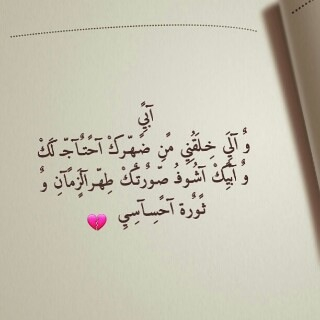 آبيًِ
وٌ آلَيَِ خِلَقُنِيِ مًنِ ضًهّرکْ آحًتٌآجّـ لَکْ
وٌ آبيِکْ آشُوفُـ صّوٌرتٌکْ طِهّرآلَزٍمًآنِ وٌ
ثًوٌرة آحًسِآسِيِ 💔